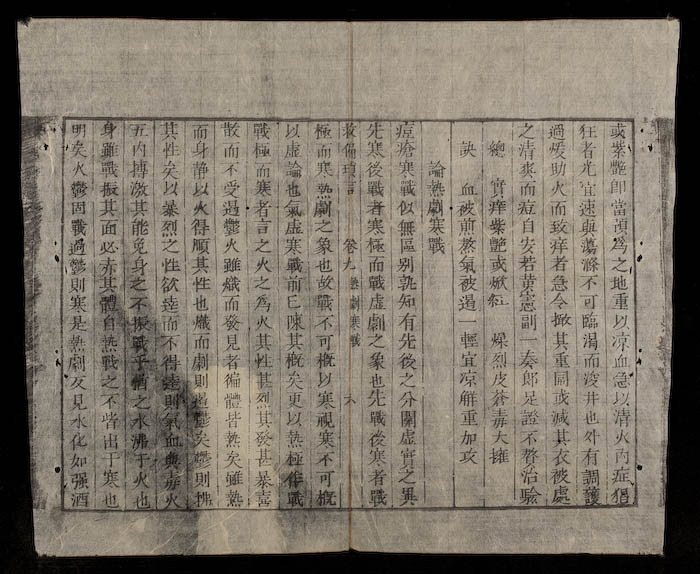 或紫艷卽當預爲之地重以凉血急以清火內症猖
狂者尤宜速與蕩滌不可臨渴而浚井也外有調護
過煖助火而致痒者急令撤其重圍或減其衣被處
之清爽而痘自安若黃憲副一奏郎足證不贅治驗
總　實痒紫艷或焮紅　燥烈皮蒼毒大擁
訣　血被煎蒸氣被遏一輕宜凉解重加攻
論熱劇寒戰
痘瘡寒戰似無區别孰知有先後之分關虛實之異
先寒後戰者寒極而戰虛劇之象也先戰後寒者戰
救偏瑣言　卷九 熱劇寒戰　六
極而寒熱劇之象也故戰不可概以寒視寒不可概
以虛論也氣虛寒戰前已陳其概矣更以熱極作戰
戰極而寒者言之火之爲火其性甚烈其發甚暴喜
散而不受遏鬱火雖熾而發見者徧體皆熱矣雖熱
而身靜以火得順其性也熾而劇則遏鬱矣鬱則拂
其性矣以暴烈之性欲達而不得達則氣血與毒火
五內搏激其能免身之不振戰乎猶之水沸于火也
身雖戰振其面必赤其體自熱戰之不皆出于寒也
明矣火鬱固戰過鬱則寒是熱劇反見水化如强酒